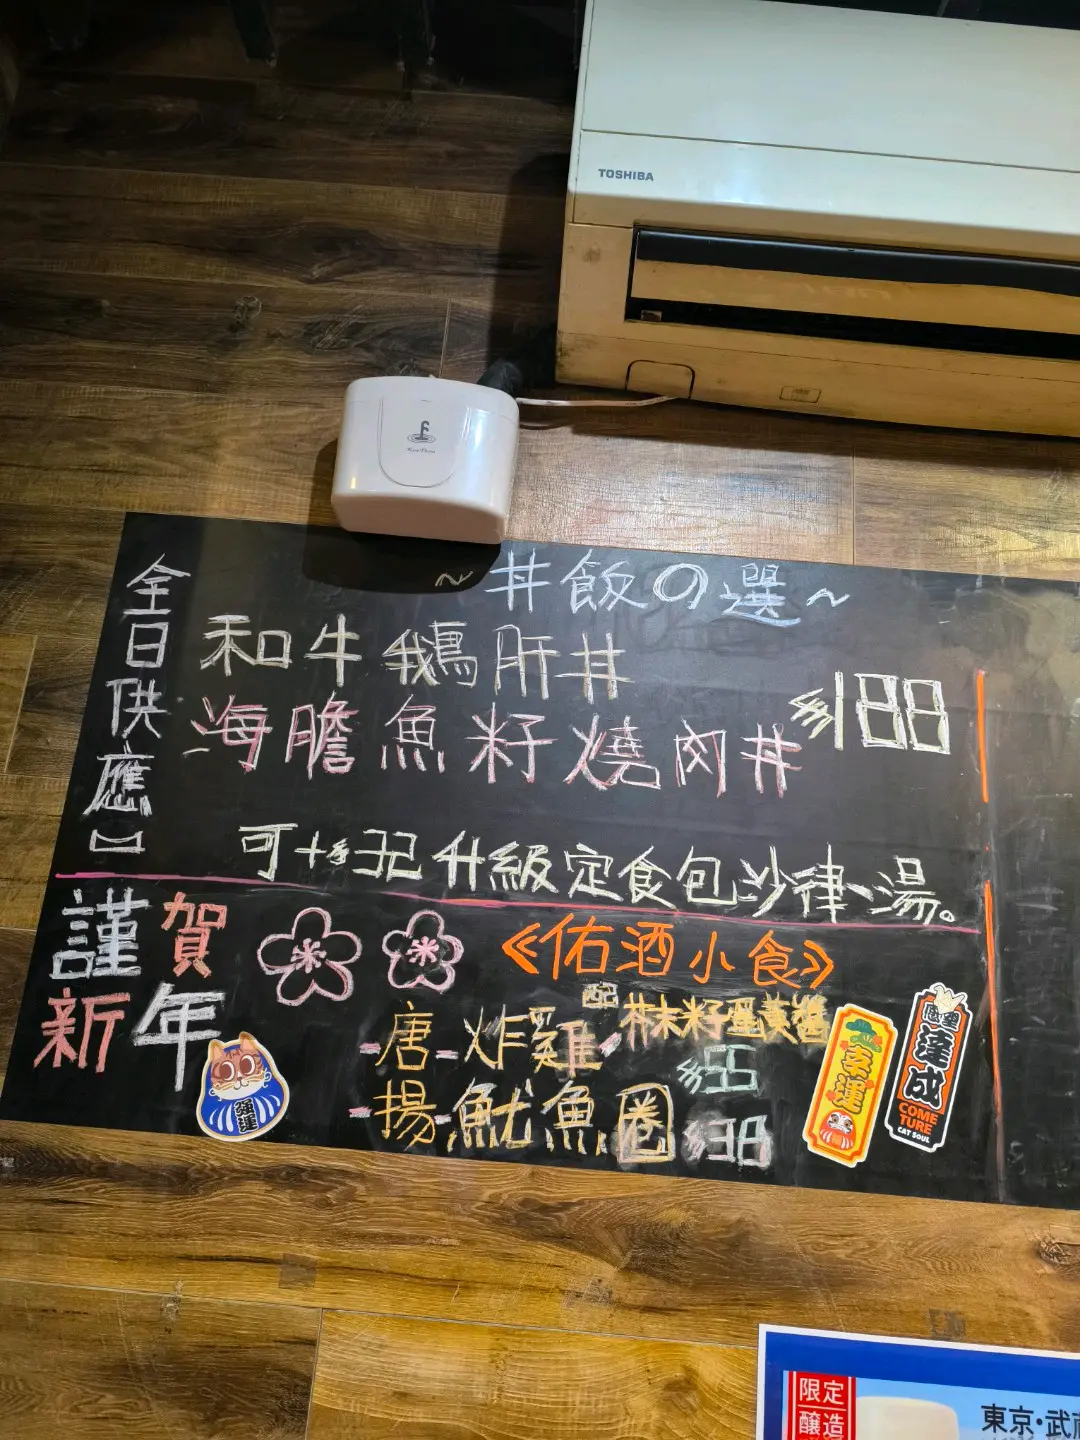 TOSHIBA
全日供應】
~丼飯の選~
和牛鵝肝丼
海膽魚籽燒肉丼
$188
可+$32升級定食包沙律、湯。
謹賀
新年
《佑酒小食》
唐-炸雞
配芥末籽蛋黃醬
$55
揚-魷魚圈
$38
強運
幸運
願望
達成
COME
TURE
CAT SOUL
限定
醸造
東京・武蔵